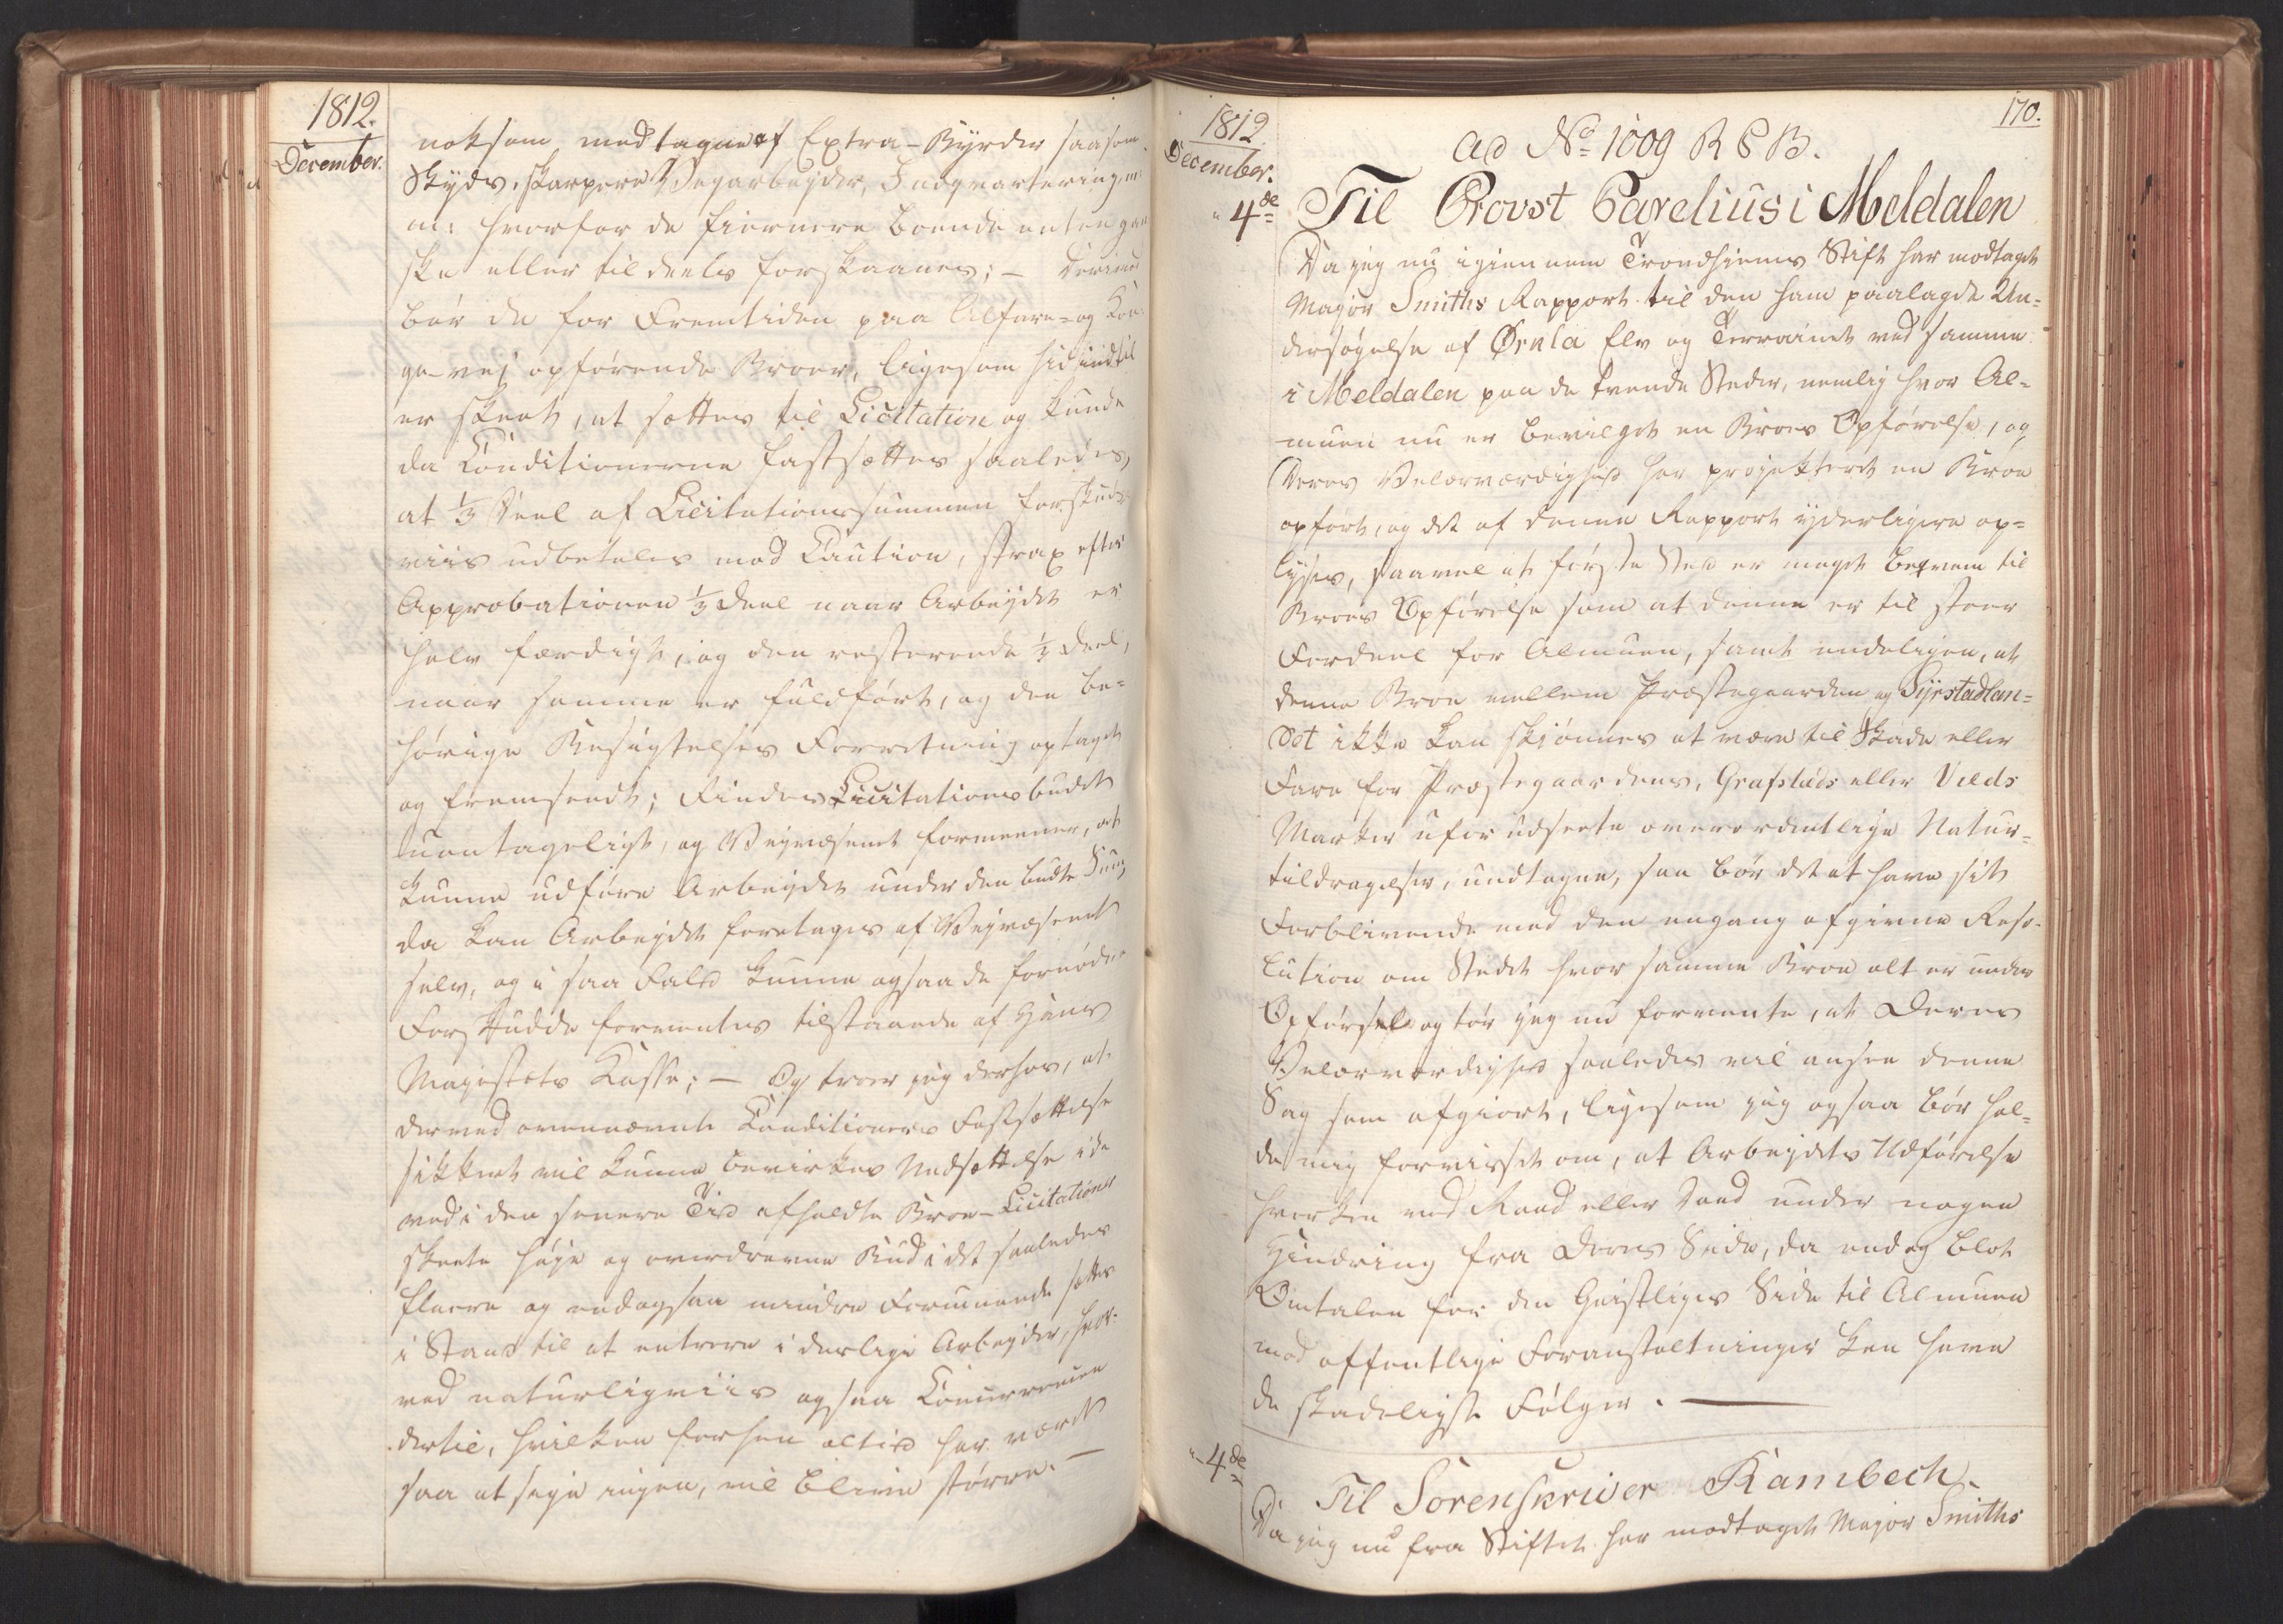 1812.
December.
noksom medtagne af Extra-Byrder saasom
Skyds, skarpere Vejarbejder, Indqvartering m:
m: hvorfor de fiernere Boende enten gan
ske eller til deels forskaanes; — Derimod
bør de for Fremtiden paa Alfare- og Kon-
ge-vej opførende Broer, ligesom hid indtil
er skeet, at sættes til Licitation og kunde
da Conditionerne fastsættes saaledes,
at 1/3 Deel af Licitationssummen forskuds-
viis udbetales mod Caution, strax efter
Approbationen 1/3 Deel naar Arbejdet er
halv færdigt, og den resterende 1/3 Deel,
naar samme er fuldført, og den be-
hørige Besigtelses Forretning optaget
og fremsendt; Findes Licitationsbudet
uantageligt, og Vejvæsenet formeener, at
kunne udføre Arbejdet under den budte Sum,
da kan Arbejdet foretages af Vejvæsenet
selv, og i saa Fald kunne ogsaa de fornødne
Forskudde forventes tilstaaede af Hans
Majestæts Kasse; — Og troer jeg derhos, at
der ved ovennævnte Conditioners Fastsættelse
sikkert vil kunne bevirkes Nedsættelse i de
ved i den senere Tid afholdte Broe-Licitationer
skeete høje og overdrevne Bud i det saaledes
fleere og endogsaa mindre Formuende sættes
i Stand til at entrere i deslige Arbejder, hvor-
ved naturligviis ogsaa Concurrencen
dertil, hvilken forhen altid har været
saa at sige ingen, vil blive større. —
170.
1812
December.
ad No 1009 R E B.
" 4de Til Provst Pareliús i Meldalen
Da jeg nu igiennem Trondhiems Stift har modtaget
Major Smiths Rapport til den ham paalagde Un-
dersøgelse af Ørkla Elv og Terrainet ved samme
i Meldalen paa de tvende Steder, nemlig hvor Al-
muen nu er bevilget en Broes Opførelse, og
Deres Velærværdighed har projekteret en Broe
opført, og det af denne Rapport yderligere op-
lyses, saavel at første Sted er meget beqvem til
Broens Opførelse som at denne er til stoer
Fordeel for Almuen, samt endeligen, at
denne Broe mellem Præstegaarden og Syrstadlan-
det ikke kan skjønnes at være til Skade eller
Fare for Præstegaardens, Grefstads eller Vilds
Marker uforudseete overordentlige Natur-
tildragelser, undtagne, saa bør det at have sit
Forblivende med den engang afgivne Reso-
lution om Stedet hvor samme Broe alt er under
Opførsel og tør jeg nu formente, at Deres
Velærværdighed saaledes vil ansee denne
Sag som afgiort, ligesom jeg ogsaa bør hol-
de mig forvisset om, at Arbejdets Udførelse
hverken ved Raad eller Daad under nogen
Hindring fra Deres Side, da endog blot
Omtalen fra den Geistliges Side til Almuen
mod offentlige Foranstaltninger kan have
de skadeligste Følger. —
" 4de
Til Sorenskriver Rambech
Da jeg nu fra Stiftet har modtaget Major Smiths